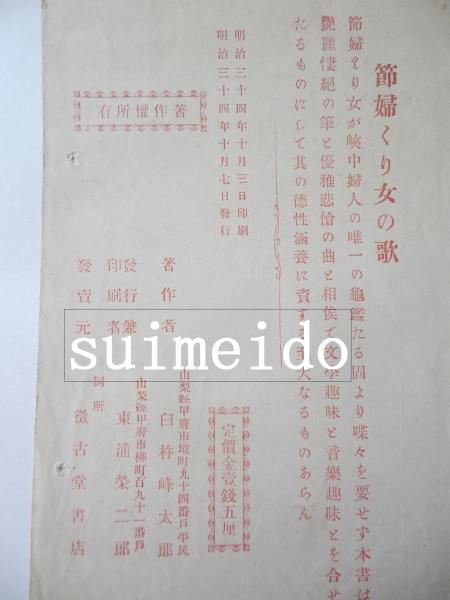 節婦くり女の歌
節婦くり女が峽中婦人の唯一の龜鑑たる固より喋々を要せず本書は
艷麗悽絶の筆と優雅悲愴の曲と相俟て文學趣味と音樂趣味とを合せ
たるものにして其の徳性涵養に資する至大なるものあらん
明治三十四年十月三日印刷
明治三十四年十月七日發行
有所權作著
定價金壹錢五厘
山梨縣甲府市境町九十四番戸平民
著作者 臼杵峰太郎
山梨縣甲府市柳町百九十一番戸
發行兼印刷者 東浦榮二郎
同所
發賣元 徴古堂書店
suimeido